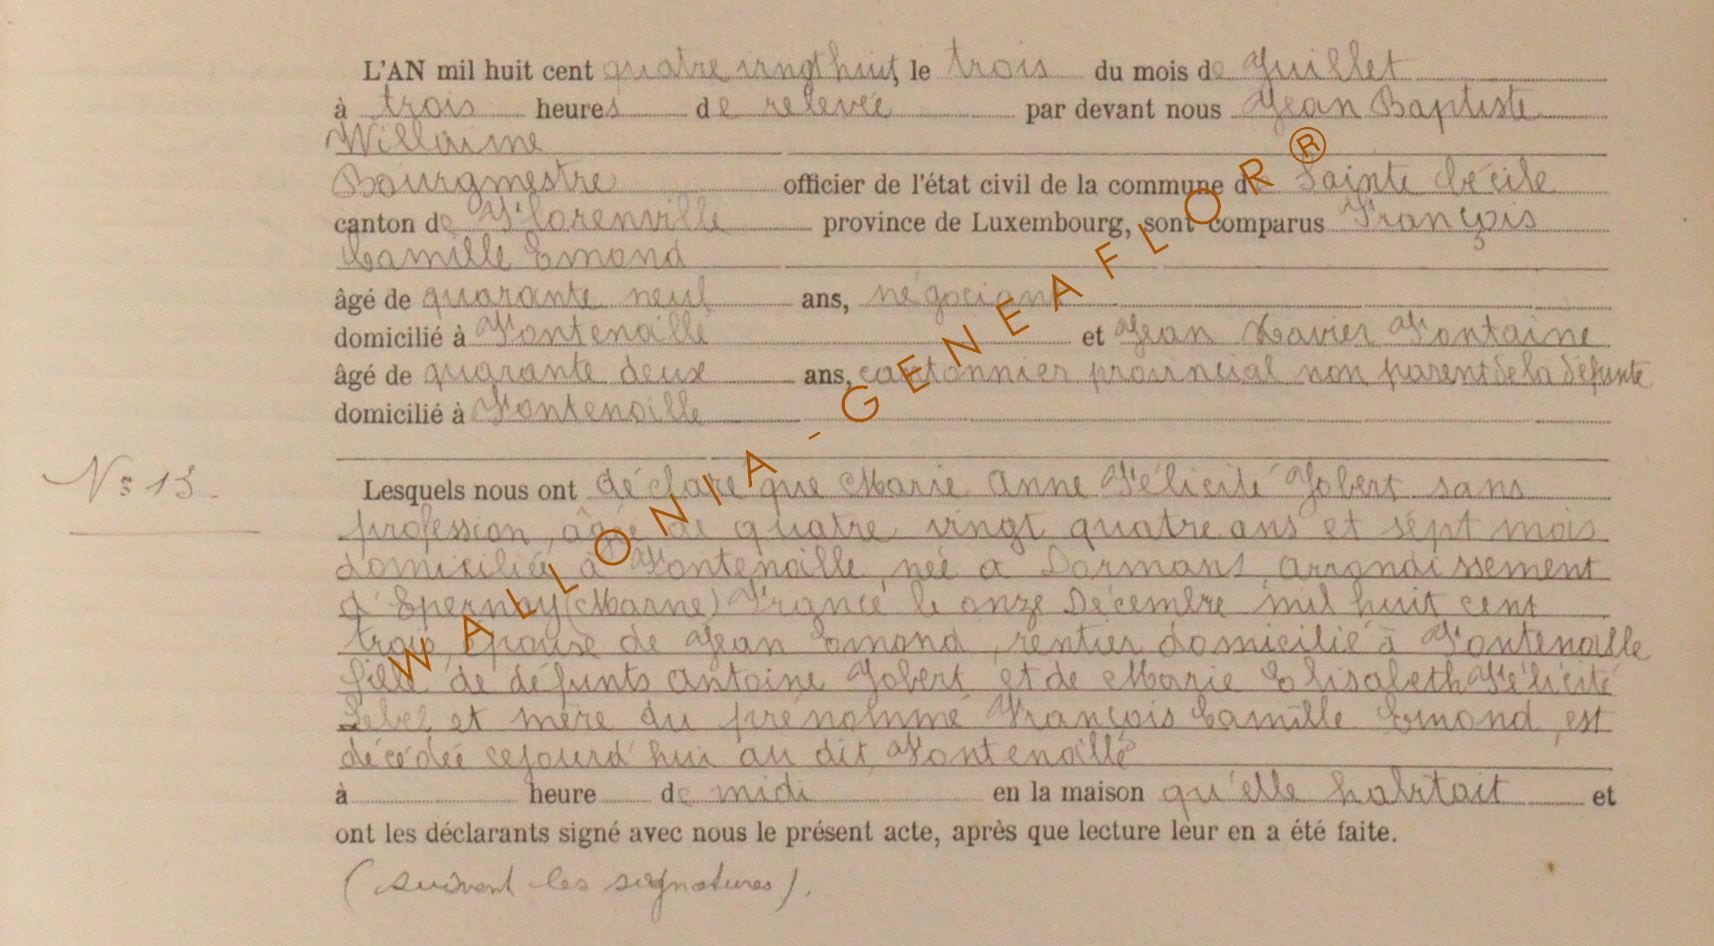 L'AN mil huit cent quatre vingt huit, le trois du mois de Juillet
à trois heures de relevée par devant nous Jean Baptiste
Willaime
Bourgmestre officier de l'état civil de la commune de Sainte Cécile
canton de Florenville province de Luxembourg, sont comparus François
Camille Emond
âgé de quarante neuf ans, négociant
domicilié à Fontenoille et Jean Xavier Fontaine
âgé de quarante deux ans, cantonnier provincial non parent de la défunte
domicilié à Fontenoille
No 13
Lesquels nous ont déclaré que Marie Anne Félicité Jobert sans
profession, âgée de quatre vingt quatre ans et sept mois
domiciliée à Fontenoille, née a Dormans, arrondissement
d'Epernay (Marne) France le onze Décembre mil huit cent
trois, épouse de Jean Emond, rentier domicilié à Fontenoille
fille de défunts Antoine Jobert et de Marie Elisabeth Félicité
Lebel et mère du prénommé François Camille Emond, est
décédée cejourd'hui au dit Fontenoille
à heure de midi en la maison qu'elle habitait et
ont les déclarants signé avec nous le présent acte, après que lecture leur en a été faite.
(suivent les signatures).
WALLONIA - GENEAFLOR®